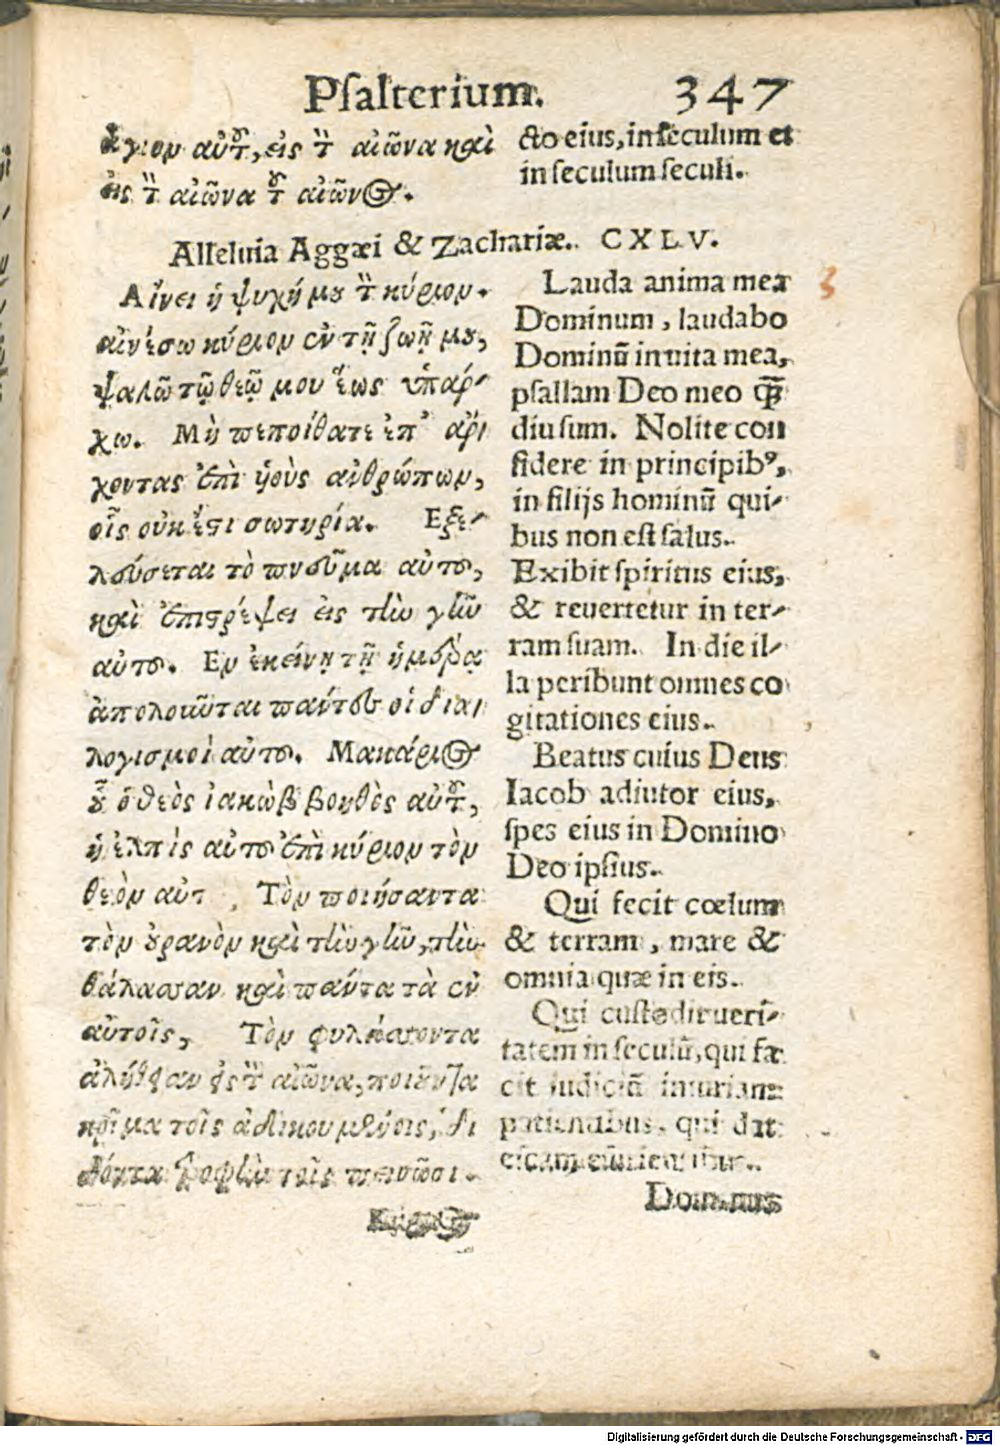 Psalterium. 347
ἅγιον αὐτȣ͂, εἰς τ̀ αἰῶνα καὶ
εἰς τ̀ αἰῶνα τȣ͂ αἰῶνος.
cto eius, in seculum et
in seculum seculi.
Alleluia Aggæi & Zachariæ. CXLV.
Αἴνει ἡ ψυχή μȣ τ̀ κύριον.
αἰνέσω κύριον ἐν τῇ ζωῇ μȣ,
ψαλῶ τῷ θεῷ μου ἕως ὑπάρ-
χω. Μὴ πεποίθατε ἐπ' ἄρ
χοντας ἐπὶ ἡοὺς ἀνθρώπων,
οἷς οὐκ ἔστι σωτηρία. Εξε-
λεύσεται τὸ πνεῦμα αὐτȣ,
καὶ ἐπιστρέψει εἰς τὴν γῆν
αὐτȣ. Εν ἐκείνῃ τῇ ἡμέρᾳ
ἀπολοῦνται πάντες οἱ δια
λογισμοὶ αὐτȣ. Μακάριος
ȣ̃ ὁ θεὸς ἰακὼβ βοηθὸς αὐτȣ͂,
ἡ ἐλπὶς αὐτȣ ἐπὶ κύριον τὸν
θεὸν αὐτ . Τὸν ποιήσαντα
τὸν ȣ̓ρανὸν καὶ τὴν γῆν, τὴν
θάλασσαν καὶ πάντα τὰ ἐν
αὐτοῖς, Τὸν φυλάσσοντα
ἀλήθειαν εἰς τ̀ αἰῶνα, ποιȣ͂ντα
κρῖμα τοῖς ἀδικουμένοις, δι
δόντα τροφὴν τοῖς πεινῶσι.
Κύριος
Lauda anima mea
Dominum, laudabo
Dominũ in uita mea,
psallam Deo meo quã
diu sum. Nolite con
fidere in principibꝰ,
in filijs hominũ qui-
bus non est salus.
Exibit spiritus eius,
& reuertetur in ter-
ram suam. In die il-
la peribunt omnes co
gitationes eius.
Beatus cuius Deus
Iacob adiutor eius,
spes eius in Domino
Deo ipsius.
Qui fecit cœlum
& terram, mare &
omnia quæ in eis.
Qui custodit ueri-
tatem in seculũ, qui fa
cit iudiciũ iniuriam
patientibus, qui dat
escam esurientibus.
Dominus
Digitalisierung gefördert durch die Deutsche Forschungsgemeinschaft - DFG